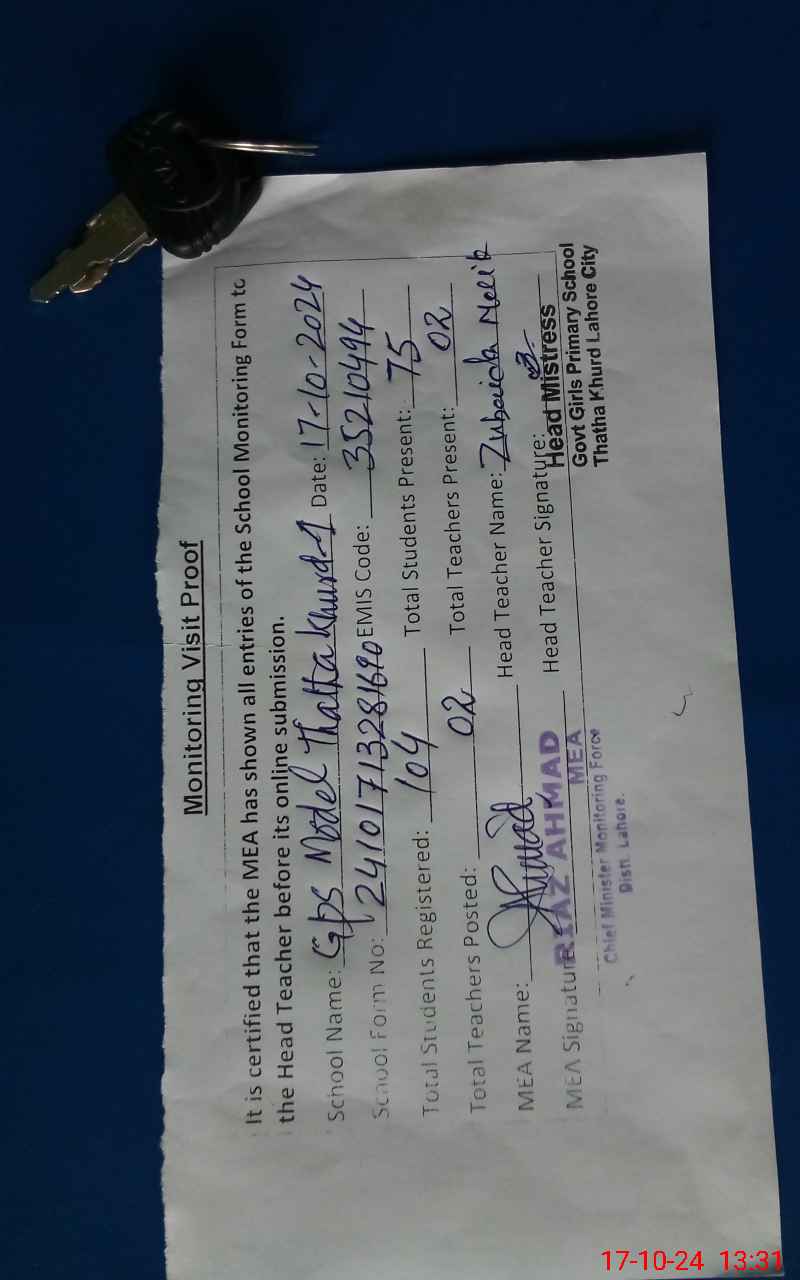 Monitoring Visit Proof
It is certified that the MEA has shown all entries of the School Monitoring Form to
the Head Teacher before its online submission.
School Name: Gps Model Thatta Khurd-1 Date: 17-10-2024
School Form No: 24101713281690 EMIS Code: 35210494
Total Students Registered: 104 Total Students Present: 75
Total Teachers Posted: 02 Total Teachers Present: 02
MEA Name: Ahmad Head Teacher Name: Zubaida Malik
MEA Signature Head Teacher Signature:
RIAZ AHMAD
MEA
Chief Minister Monitoring Force
Distt. Lahore.
Head Mistress
Govt Girls Primary School
Thatha Khurd Lahore City
17-10-24 13:31